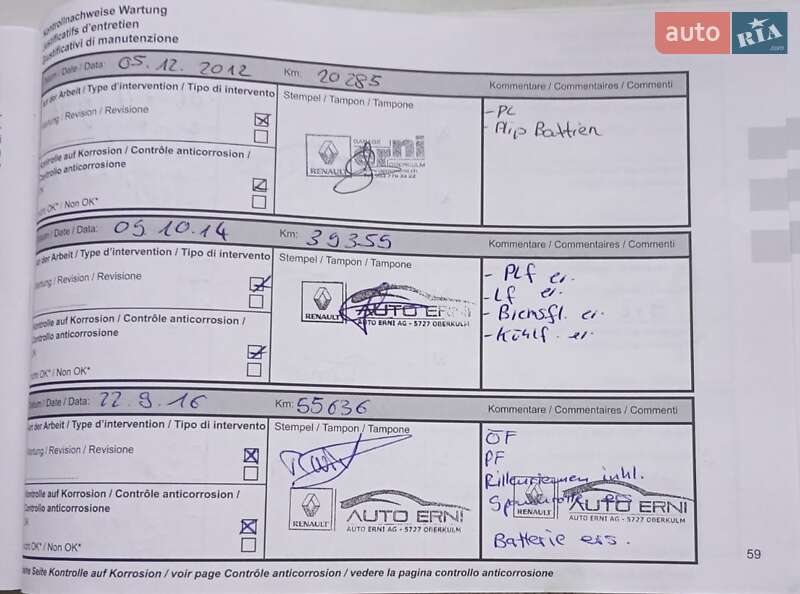 Kontrollnachweise Wartung
Justificatifs d'entretien
Giustificativi di manutenzione
auto RIA
Datum / Date / Data: 05.12.2012 Km: 20285 Kommentare / Commentaires / Commenti
Art der Arbeit / Type d'intervention / Tipo di intervento
Stempel / Tampon / Tampone
Wartung / Revision / Revisione
- PL
RENAULT
GARAGE
erni
OBERKULM
Kontrolle auf Korrosion / Contrôle anticorrosion /
Controllo anticorrosione
OK
Nicht OK* / Non OK*
Datum / Date / Data: 09.10.14 Km: 39359 Kommentare / Commentaires / Commenti
Art der Arbeit / Type d'intervention / Tipo di intervento
Stempel / Tampon / Tampone
Wartung / Revision / Revisione
- PLf er.
- Lf er.
- Bremsfl. er.
- Kühlf. er.
RENAULT
AUTO ERNI
AUTO ERNI AG - 5727 OBERKULM
Kontrolle auf Korrosion / Contrôle anticorrosion /
Controllo anticorrosione
OK
Nicht OK* / Non OK*
Datum / Date / Data: 22.9.16 Km: 55636 Kommentare / Commentaires / Commenti
Art der Arbeit / Type d'intervention / Tipo di intervento
Stempel / Tampon / Tampone
Wartung / Revision / Revisione
ÖF
PF
Rillenriemen inkl.
Spannrolle ers
Batterie ers.
RENAULT
AUTO ERNI
AUTO ERNI AG - 5727 OBERKULM
RENAULT
AUTO ERNI
AUTO ERNI AG - 5727 OBERKULM
Kontrolle auf Korrosion / Contrôle anticorrosion /
Controllo anticorrosione
OK
Nicht OK* / Non OK*
59
Siehe Seite Kontrolle auf Korrosion / voir page Contrôle anticorrosion / vedere la pagina controllo anticorrosione